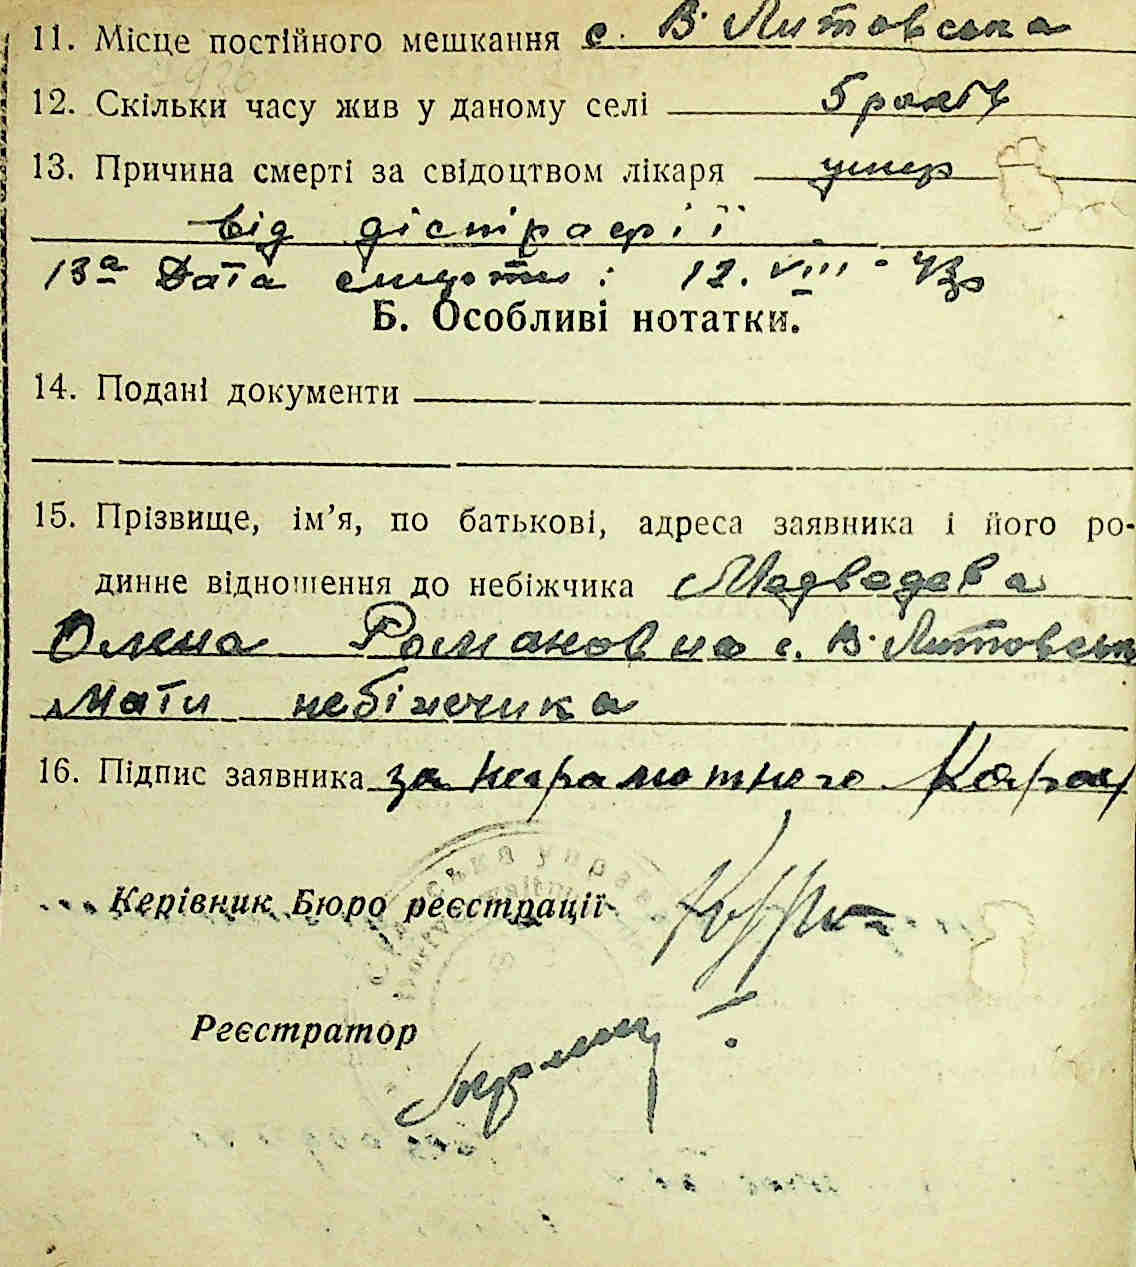 11. Місце постійного мешкання с. В. Литовська
12. Скільки часу жив у даному селі 5 років
13. Причина смерті за свідоцтвом лікаря умер
від дістрафії
13а Дата смерти: 12. VIII - 43р
Б. Особливі нотатки.
14. Подані документи
15. Прізвище, ім’я, по батькові, адреса заявника і його ро-
динне відношення до небіжчика Медведева
Олена Романовна с. В. Литовськ
Мати небіжечика
16. Підпис заявника за неграмотного
Керівник Бюро реєстрації
Реєстратор